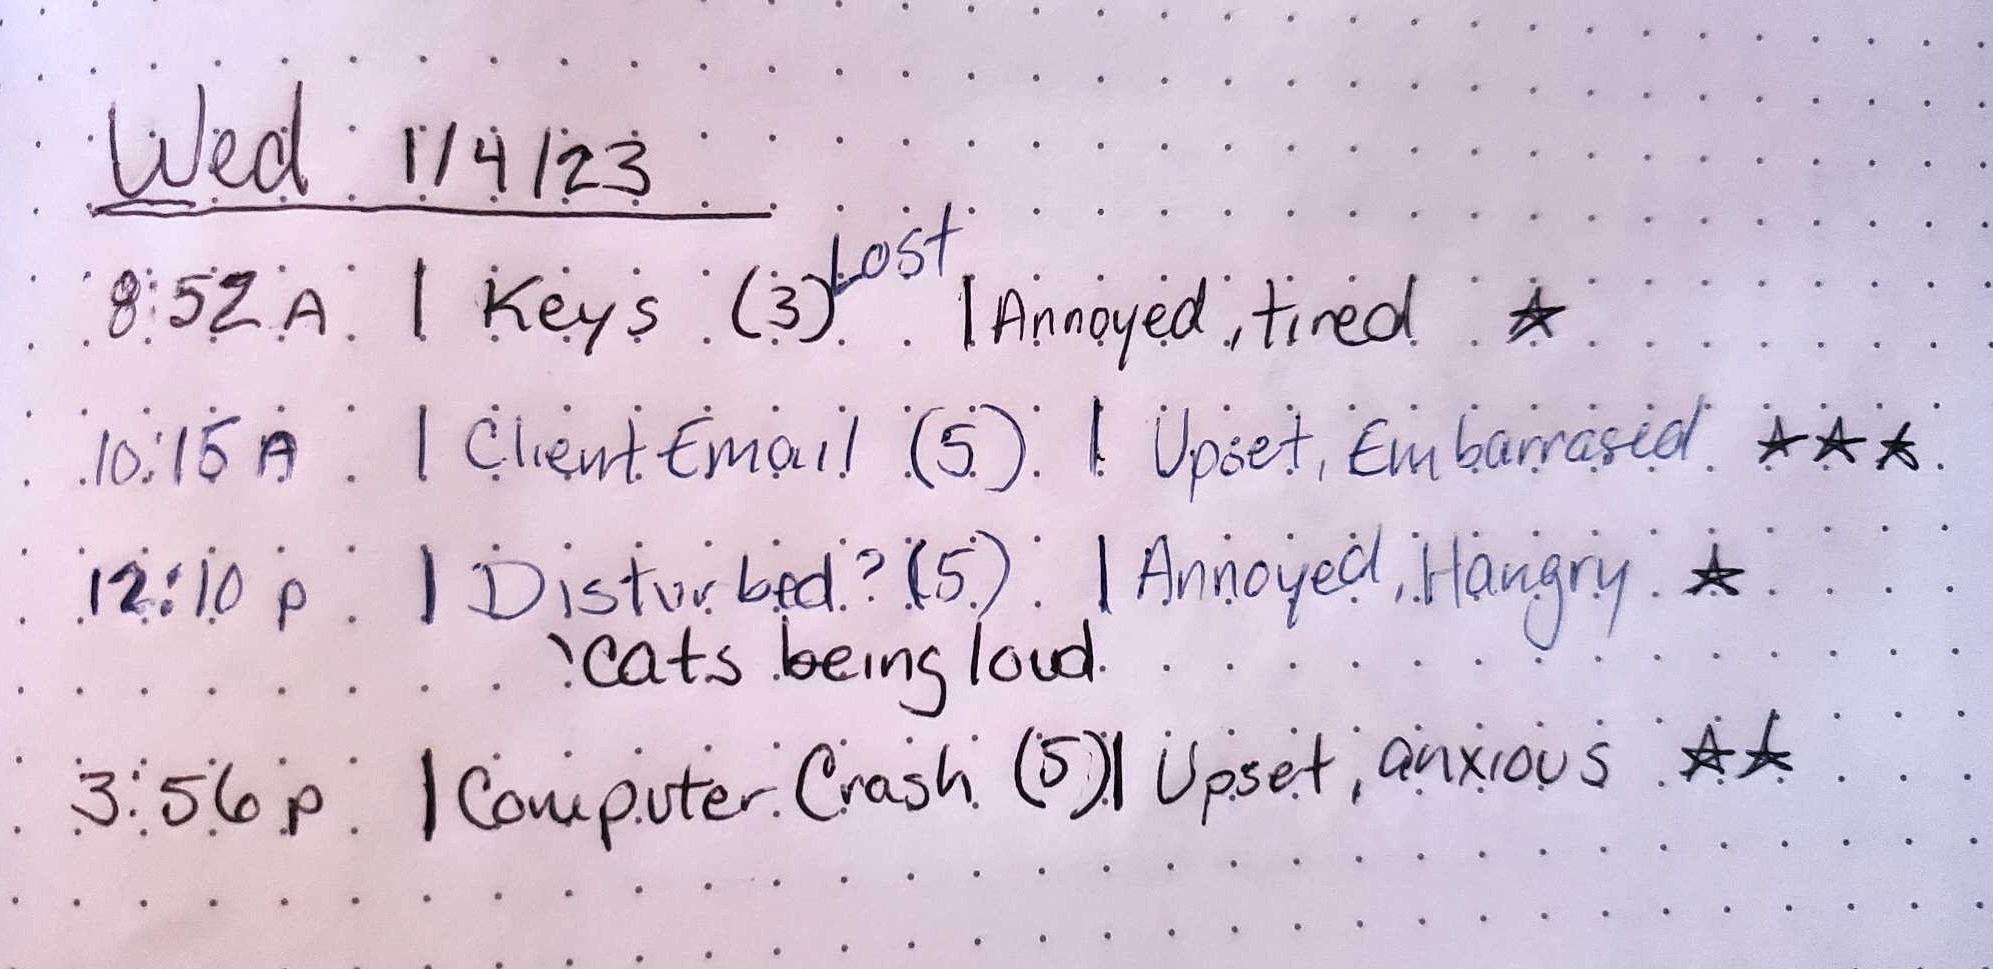 Wed 1/4/23
8:52 A | Keys (3) Lost | Annoyed, tired ★
10:15 A | Client Email (5) | Upset, Embarrased ★★★
12:10 p | Disturbed? (5) | Annoyed, Hangry ★
cats being loud
3:56 p | Computer Crash (5) | Upset, anxious ★★